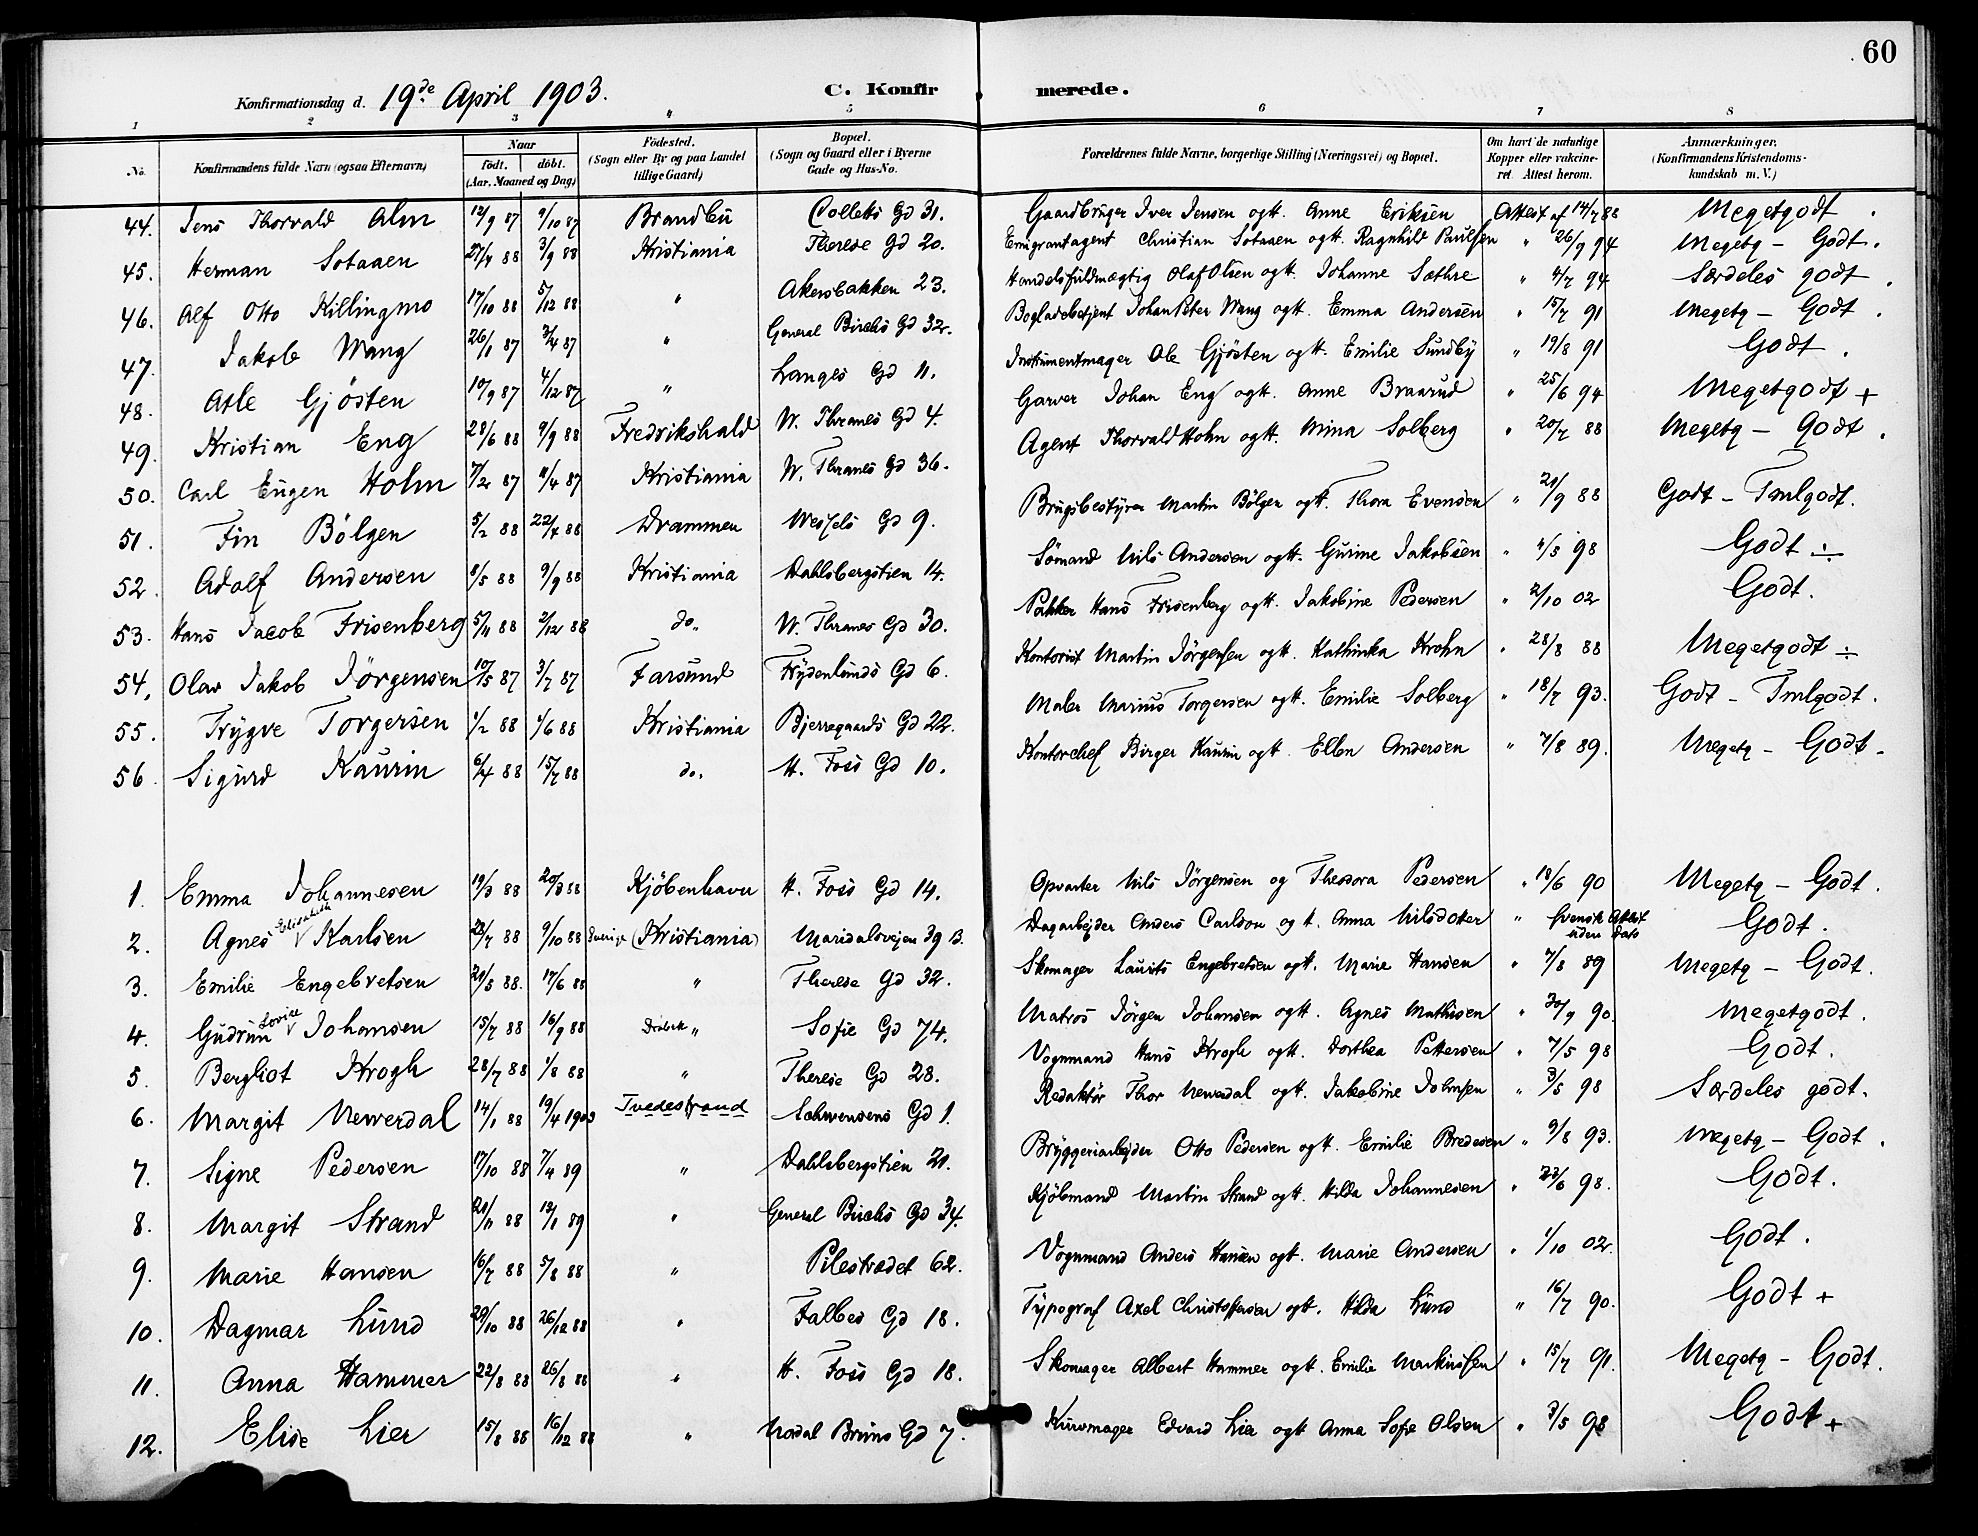 60
Konfirmationsdag d. 19de April 1903. C. Konfirmerede.
1 2 3 " 5 6 7 8
No. Konfirmandens fulde Navn (ogsaa Efternavn) Naar født. døbt. (Aar, Maaned og Dag) Födested. (Sogn eller By og paa Landet tillige Gaard) Bopæl. (Sogn og Gaard eller i Byerne Gade og Hus-No. Forældrenes fulde Navne, borgerlige Stilling (Næringsvei) og Bopæl. Om havt de naturlige Kopper eller vakcineret. Attest herom. Anmærkninger. (Konfirmandens Kristendomskundskab m. V.)
44. Jens Thorvald Alm 12/9 87 9/10 87 Brandbu Colletts Gd 31. Gaardbruger Iver Jensen ogtt. Anne Eriksen Attest af 14/7 88 Megetgodt.
45. Herman Sotaaen 27/4 88 3/9 88 Kristiania Therese Gd 20. Emigrantagent Christian Sotaaen ogtt. Ragnhild Paulsen " 26/9 94 Megetg – Godt.
46. Alf Otto Killingmo 17/10 88 5/12 88 " Akersbakken 23. Handelsfuldmægtig Olaf Olsen ogtt. Johanne Sæthre " 4/7 94 Særdeles godt.
47. Jakob Wang 26/1 87 3/4 87 " General Birchs Gd 32. Bogladebetjent Johan Peter Wang ogtt. Emma Andersen " 15/7 91 Megetg – Godt.
48. Atle Gjösten 10/9 87 4/12 87 " Langes Gd 11. Instrumentmager Ole Gjösten ogtt. Emilie Sundby " 19/8 91 Godt.
49. Kristian Eng 28/6 88 9/9 88 Fredrikshald W. Thranes Gd 4. Garver Johan Eng ogtt. Anne Braarud " 25/6 94 Megetgodt +
50. Carl Eugen Holm 7/2 87 11/4 87 Kristiania W. Thranes Gd 36. Agent Thorvald Holm ogtt. Mina Solberg " 20/7 88 Megetg – Godt.
51. Fin Bölgen 5/2 88 22/4 88 Drammen Wessels Gd 9. Brugsbestyrer Martin Bölgen ogtt. Thora Evensen " 21/9 88 Godt – Tmlgodt.
52. Adolf Andersen 8/5 88 9/9 88 Kristiania Dahlsbergstien 14. Sömand Nils Andersen ogtt. Gurine Jakobsen " 4/5 98 Godt ÷
53. Hans Jacob Frisenberg 5/11 88 2/12 88 do. W. Thranes Gd 30. Pakker Hans Frisenberg ogtt. Jakobine Pedersen " 2/10 02 Godt.
54. Olav Jakob Jörgensen 10/5 87 3/7 87 Farsund Frydenlunds Gd 6. Kontorist Martin Jörgensen ogtt. Kathinka Krohn " 28/8 88 Megetgodt ÷
55. Trygve Torgersen 1/2 88 1/6 88 Kristiania Bjerregaards Gd 22. Maler Marius Torgersen ogtt. Emilie Solberg " 18/7 93. Godt – Tmlgodt.
56. Sigurd Kaurin 6/4 88 15/7 88 do. H. Foss Gd 10. Kontorchef Birger Kaurin ogtt. Ellen Andersen " 7/8 89. Megetg – Godt.
1. Emma Johannesen 19/3 88 20/3 88 Kjöbenhavn H. Foss Gd 14. Opvarter Nils Jörgensen og Theodora Pedersen " 18/6 90 Megetg – Godt.
2. Agnes Elisabeth Karlsen 23/7 88 9/10 88 Sverige (Kristiania) Maridalsveien 39 B. Dagarbejder Anders Carlson og t. Anna Nilsdoter " Svensk Attest uden Dato Godt.
3. Emilie Engebretsen 21/5 88. 17/6 88 " Therese Gd 32. Skomager Laurits Engebretsen ogtt. Marie Hansen " 7/8 89 Megetg – Godt.
4. Gudrun Lovise Johansen 15/7 88 16/9 88 " Sofie Gd 74. Matros Jörgen Johansen ogtt. Agnes Mathisen " 30/9 90. Megetgodt.
5. Bergliot Krogh 28/7 88 1/8 88 " Therese Gd 28. Vognmand Hans Krogh ogtt. Dorthea Pettersen " 7/5 98 Godt.
6. Margit Newerdal 14/1 88 19/4 1903 Tvedestrand Schwensens Gd 1. Redaktör Thor Newerdal ogtt. Jakobine Johnsen " 3/5 98 Særdeles godt.
7. Signe Pedersen 17/10 88 7/4 89 " Dahlsbergstien 21. Bryggeriarbejder Otto Pedersen ogtt. Emilie Bredesen " 9/8 93. Megetg – Godt.
8. Margit Strand 21/11 88 13/1 89 " General Birchs Gd 34. Kjöbmand Martin Strand ogtt. Hilda Johannesen " 23/6 98. Godt.
9. Marie Hansen 16/7 88 5/8 88 " Pilestrædet 62. Vognmand Anders Hansen ogtt. Marie Andersen " 1/10 02. Godt.
10. Dagmar Lund 29/10 88 26/12 88 " Falbes Gd 18. Typograf Axel Christoffersen ogtt. Hilda Lund " 16/7 90. Godt +
11. Anna Hammer 22/8 88 26/8 88 " H. Foss Gd 18. Skomager Albert Hammer ogtt. Emilie Markussen " 15/7 91. Megetg – Godt.
12. Elise Lier 15/8 88 16/12 88 " Nordal Bruns Gd 7. Kurvmager Edvard Lier ogtt Anna Sofie Olsen " 3/5 98 Godt +